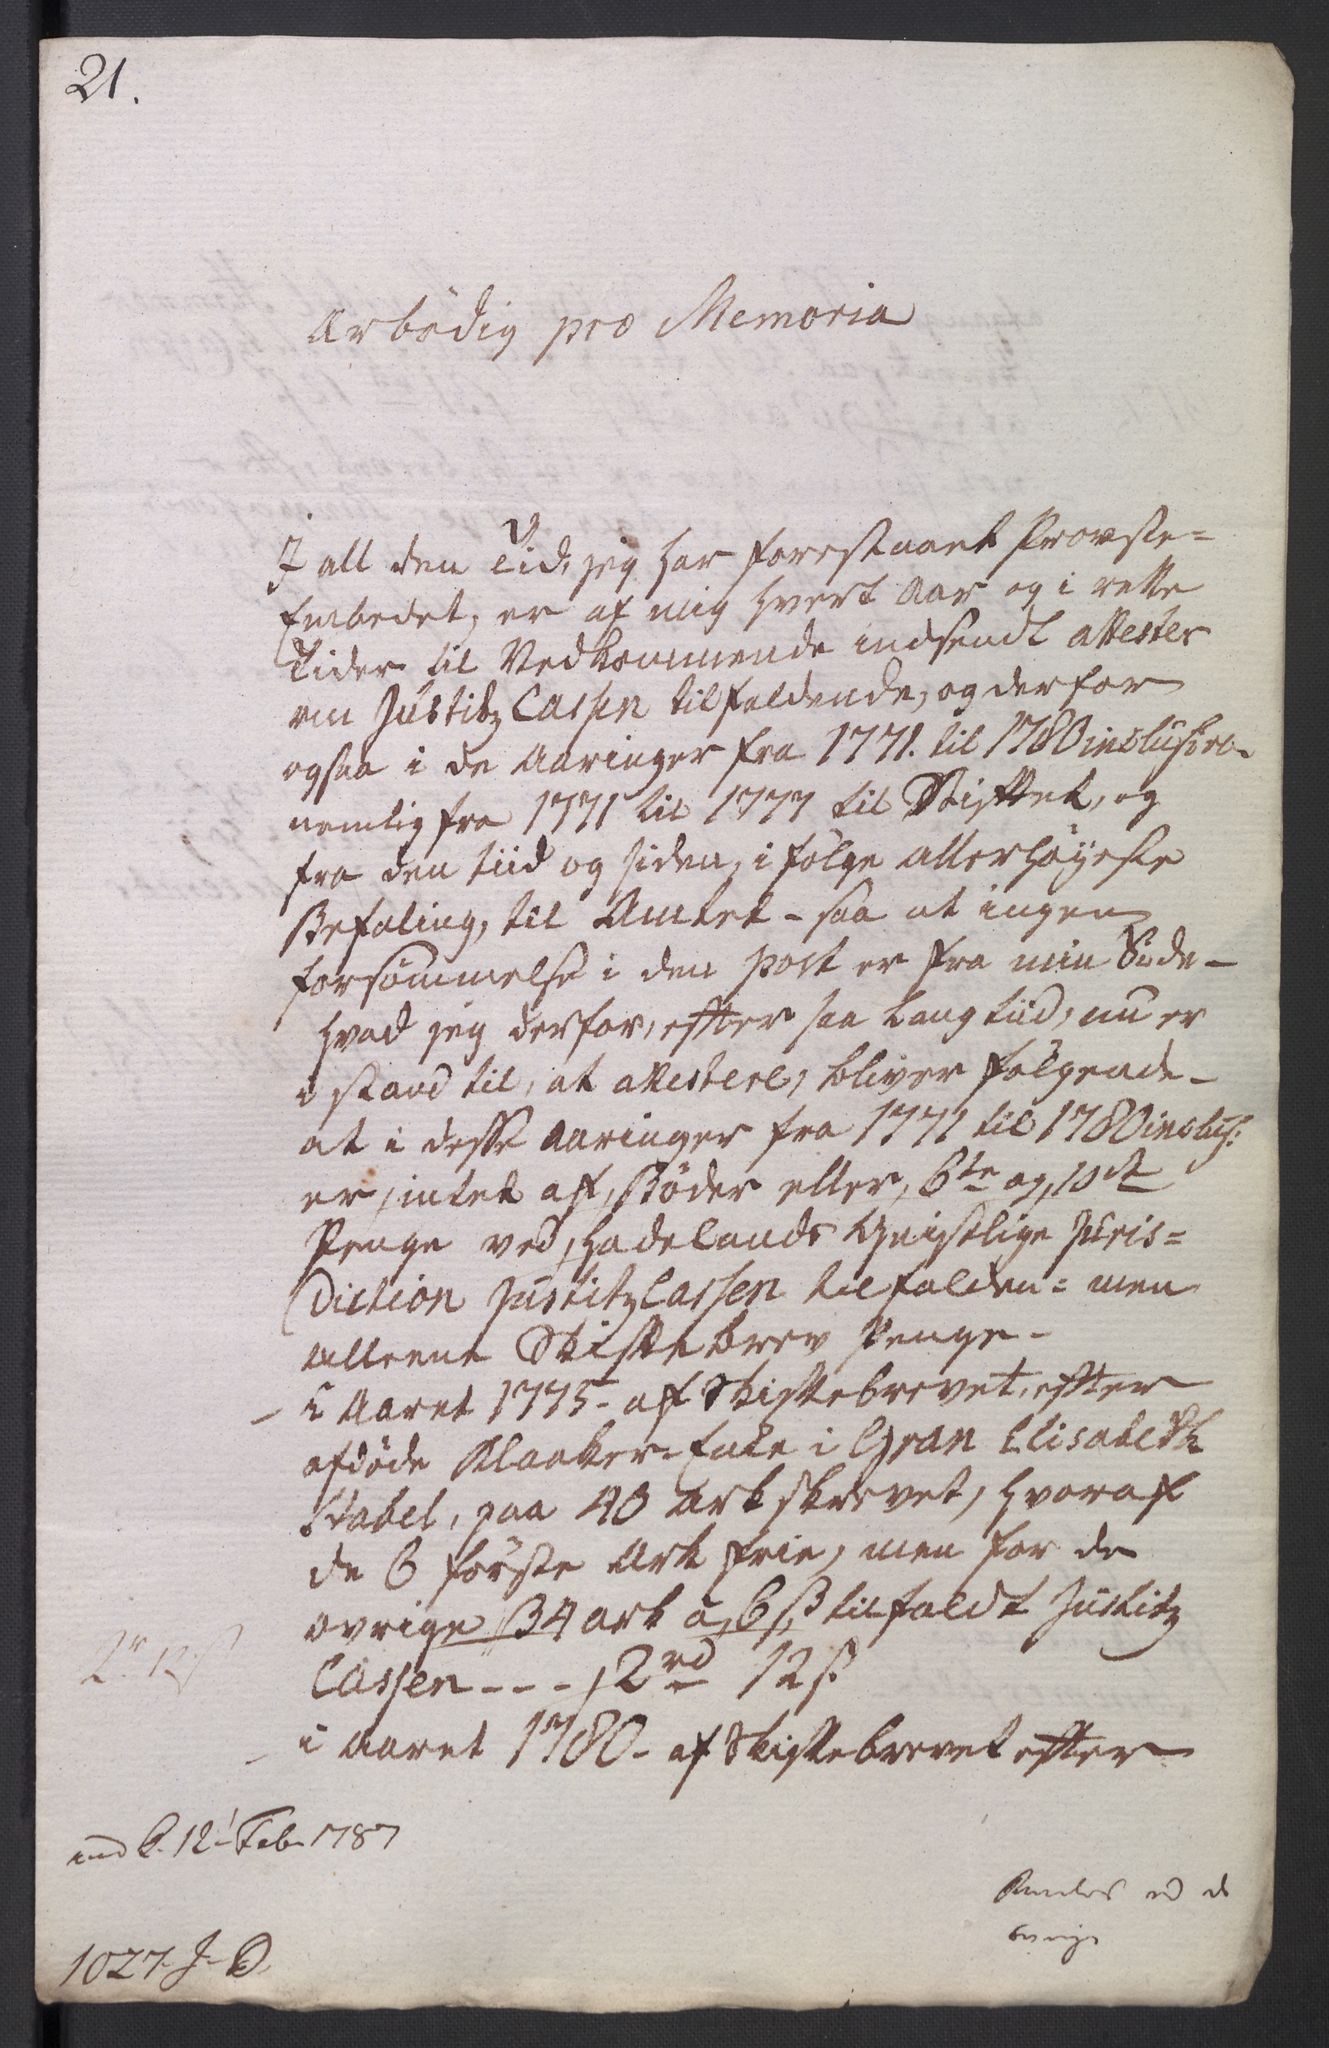 21.
Ærbödig pro Memoria
I all den Tid, jeg har forestaaet Provste=
Embedet, er af mig hvert Aar og i rette
Tider til Vedkommende indsendt attester
om Justitz Cassen tilfaldende, og derfor
ogsaa i de Aaringer fra 1771. til 1780 inclusive
nemlig fra 1771 til 1777 til Stiftet, og
fra den tiid og siden, i fölge allerhöyeste
Befaling, til Amtet - saa at ingen
forsömmelse i den post er fra min Side -
hvad jeg derfor, efter saa lang tiid, nu er
i stand til, at attestere, bliver fölgende -
at i desse Aaringer fra 1771 til 1780 inclus:
er intet af Böder eller 6te og 10de
Penge ved Hadelands Geistlige Juris=
Diction Justitz Cassen tilfalden = men
alleene Skiftebrev Penge -
- i Aaret 1775 - af Skiftebrevet, efter
afdöde Klokker-Enke i Gran Elisabeth
Stabel, paa 40 Ark skrevet, hvoraf
de 6 förste Ark frie, men for de
övrige 34 ark a 6 ß tilfaldt Justitz
Cassen - - - 2 rd 12 ß.
2 r 12 ß
- i Aaret 1780 - af Skiftebrevet efter
ind k. 12 Feb 1787
ved de
1027 J-D.